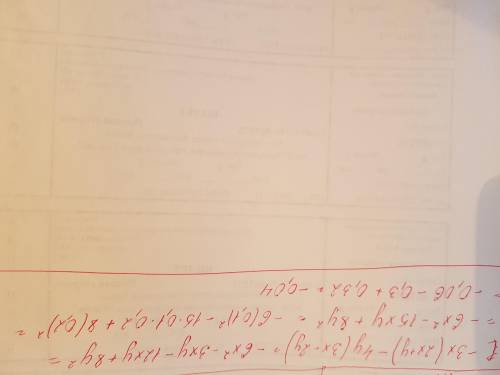 -3x(2x+y)-4y(3x-2y)=-6x²-3xy-12xy+8y²=
=-6x²-15xy+8y² = -6(0,1)²-15·0,1·0,2+8(0,2)²=
= -0,06-0,3+0,32 = -0,04